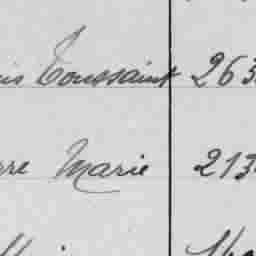 is Toussaint 263
rre Marie 213